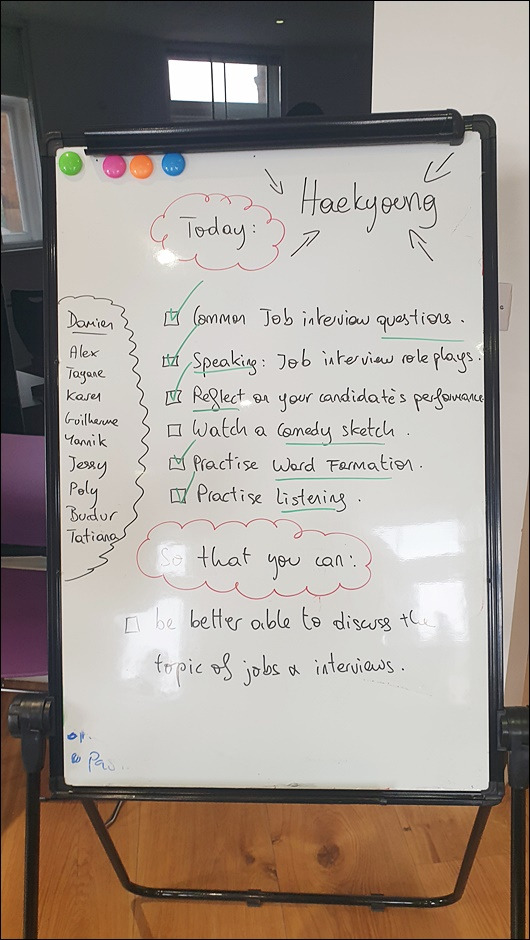 Haekyoung
Today:
Common Job interview questions.
Speaking: Job interview role plays.
Reflect on your candidate's performance
Watch a comedy sketch.
Practise Word Formation.
Practise listening.
So that you can:
be better able to discuss the
topic of jobs & interviews.
Damien
Alex
Tayane
Karen
Guilherme
Yannik
Jessy
Poly
Budur
Tatiana